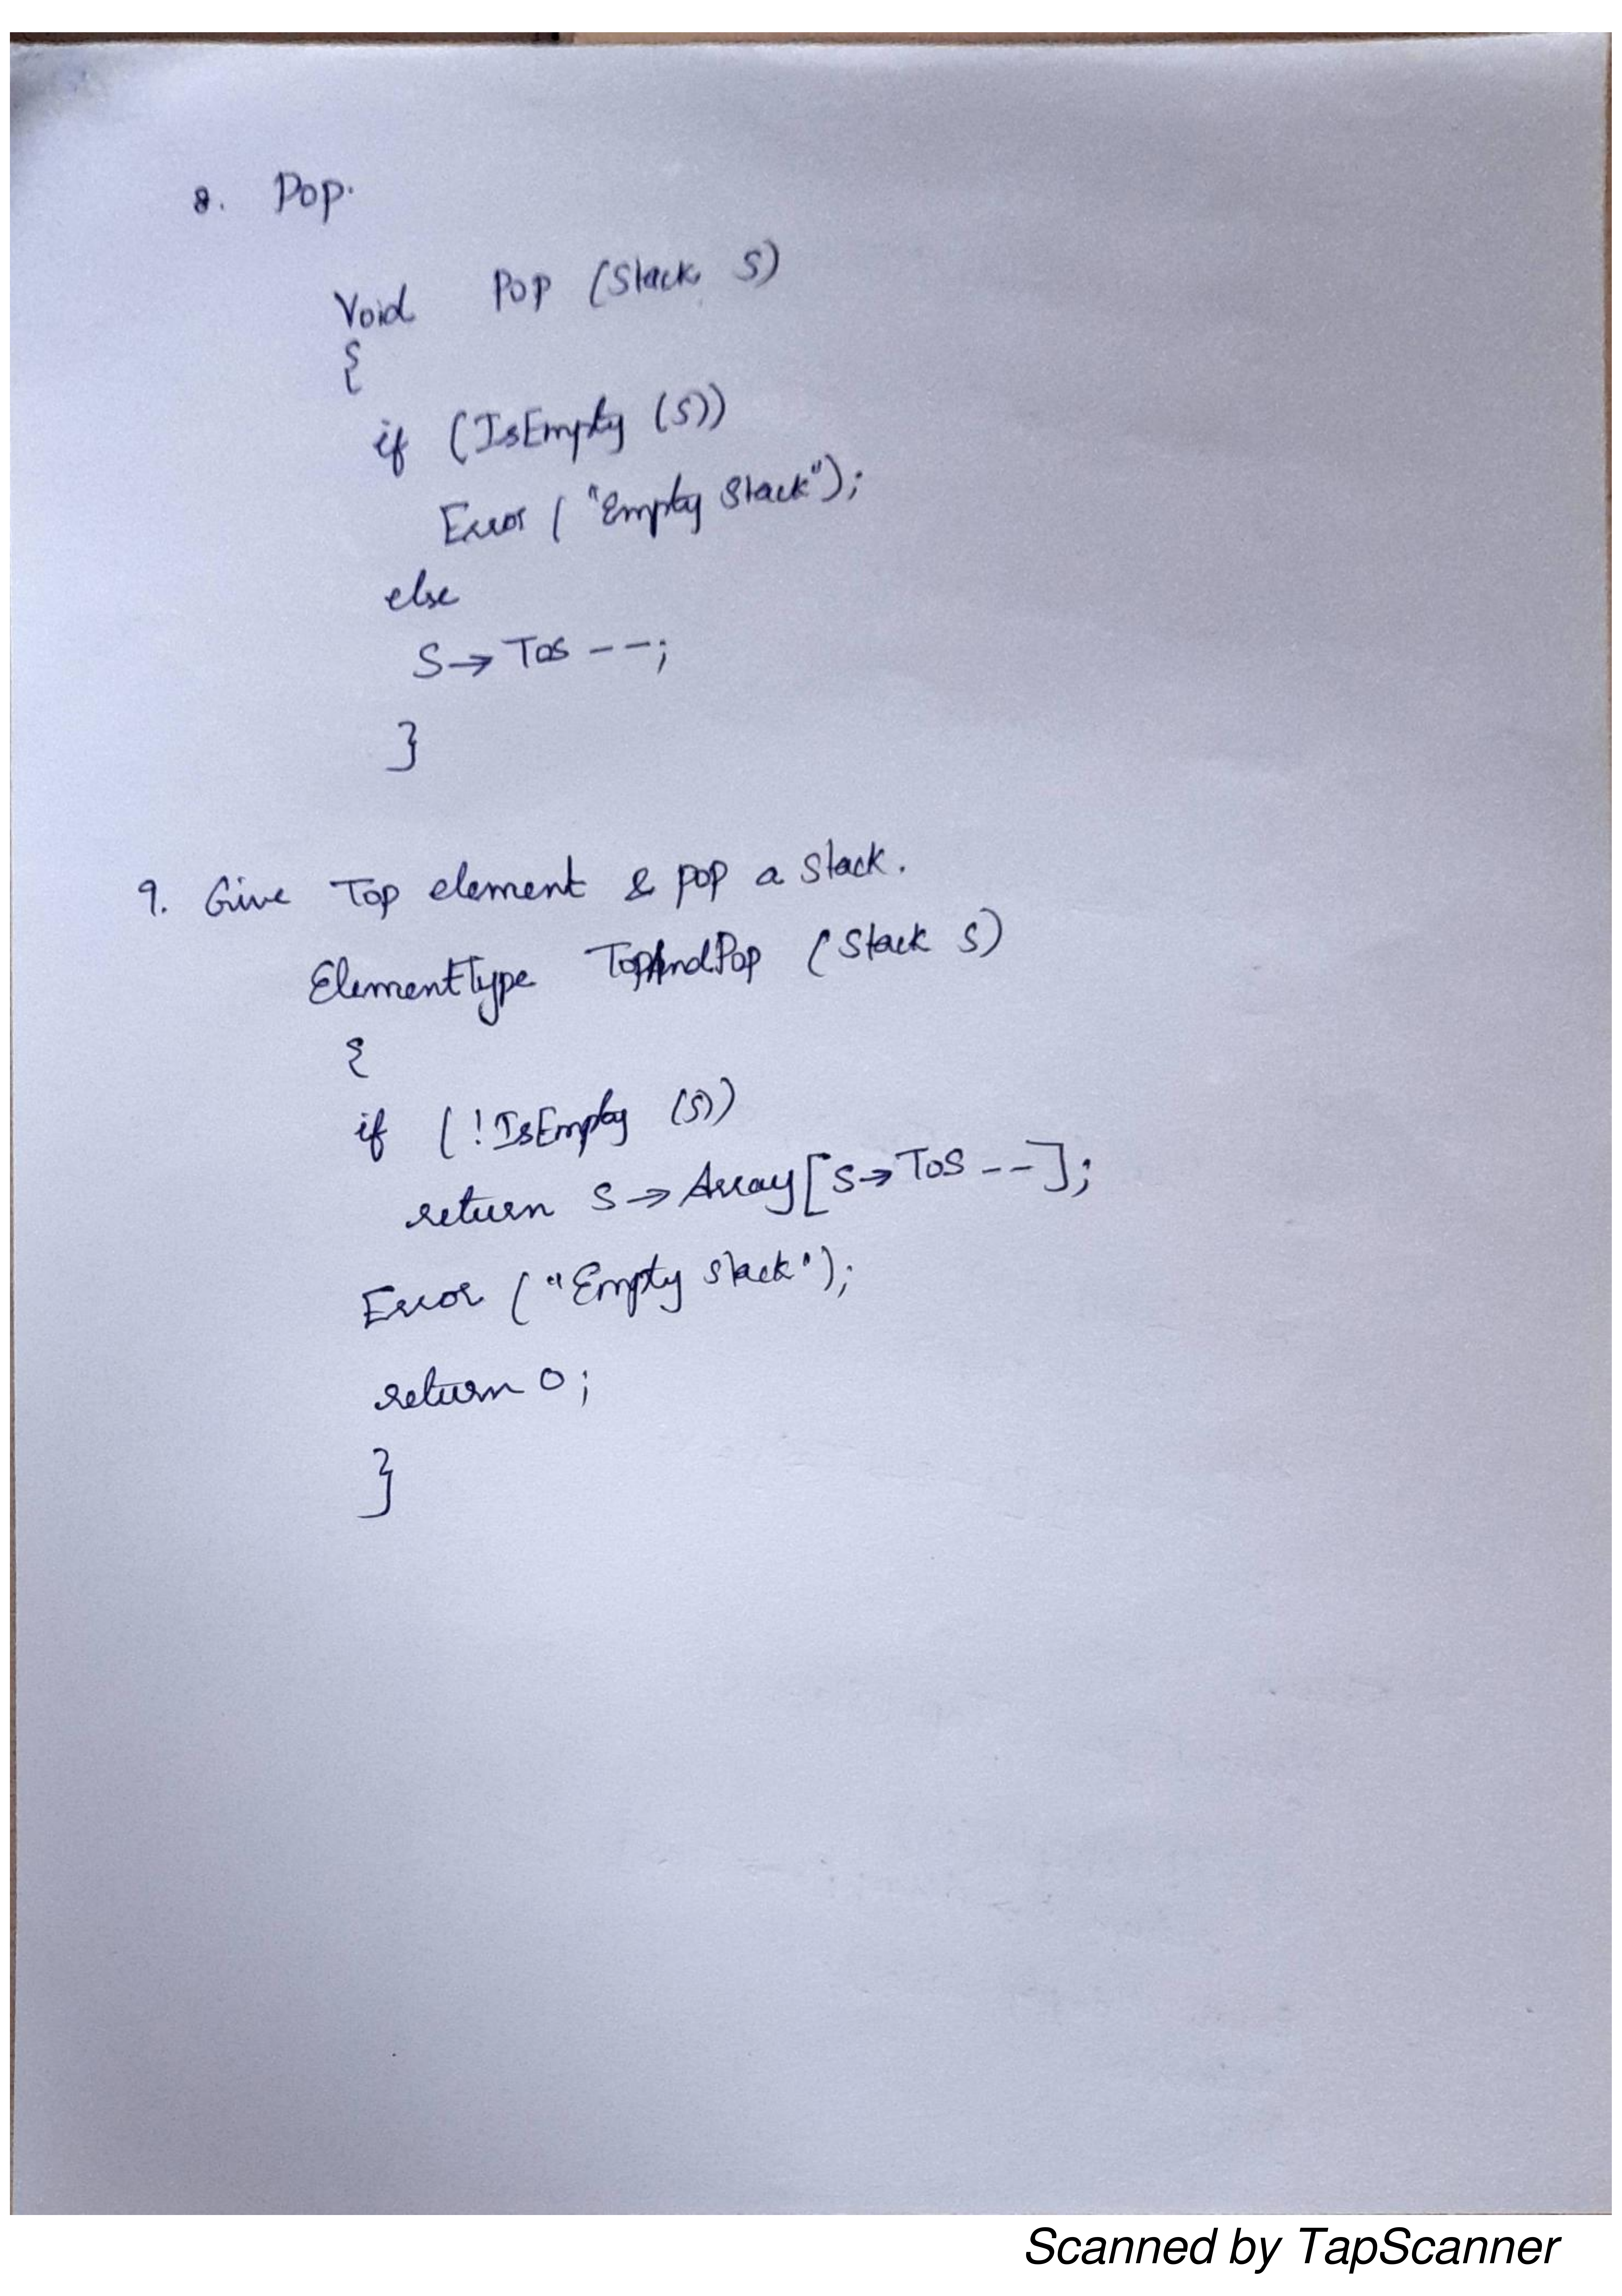 8. Pop.
Void Pop (Stack S)
{
if (IsEmpty (S))
Error ( "Empty Stack");
else
S→ Tos --;
}
9. Give Top element & pop a Stack.
ElementType TopAndPop (Stack S)
{
if (!IsEmpty (S))
return S→Array[S→ToS --];
Error ("Empty stack");
return 0;
}
Scanned by TapScanner